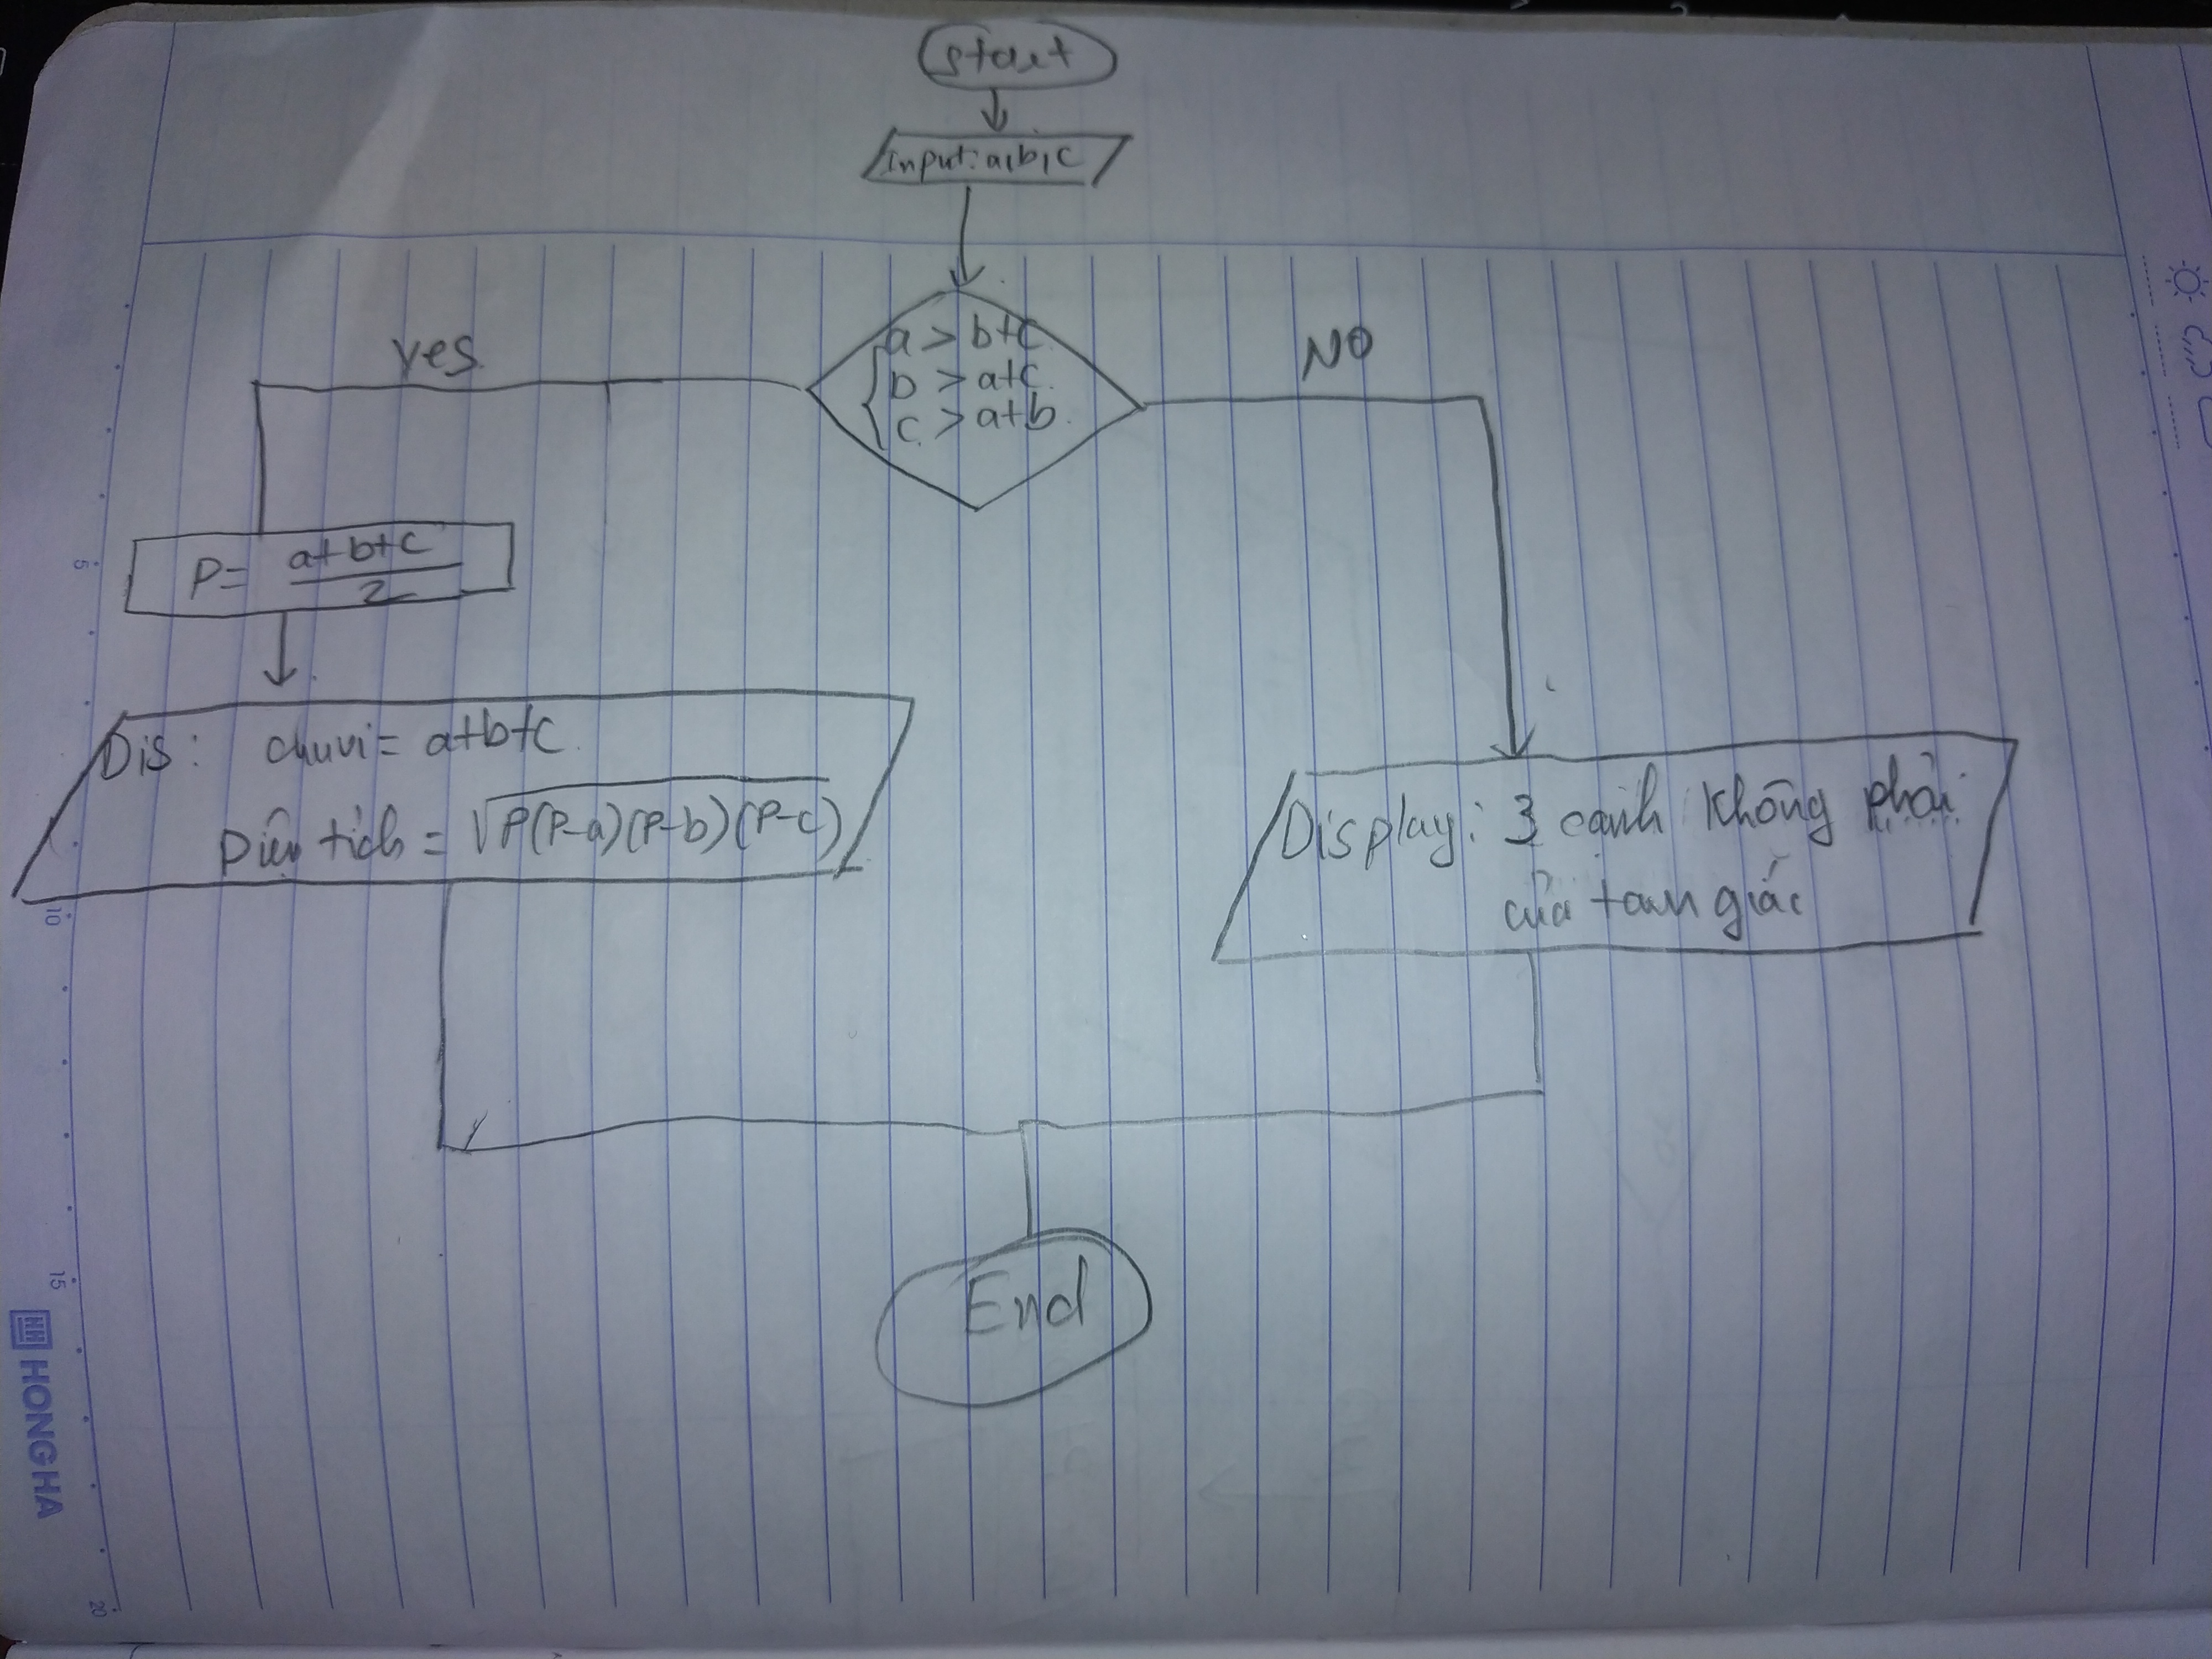 Start
Input: a,b,c
a > b+c
b > a+c
c > a+b
yes
NO
P= a+b+c
2
Dis: chuvi = a+b+c
Diện tích = √P(P-a)(P-b)(P-c)
Display: 3 cạnh không phải
của tam giác
End
5
10
15
20
HH HONG HA